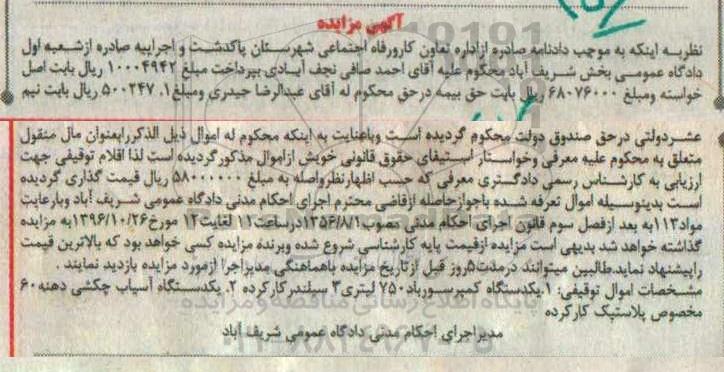 آگهی مزایده
نظربه اینکه به موجب دادنامه صادره ازاداره تعاون کارورفاه اجتماعی شهرستان پاکدشت و اجراییه صادره ازشعبه اول
دادگاه عمومی بخش شریف آباد محکوم علیه آقای احمد صافی نجف آبادی بپرداخت مبلغ ۱۰۰۰۴۹۴۲ ریال بابت اصل
خواسته ومبلغ ۶۸۰۷۶۰۰۰ ریال بابت حق بیمه درحق محکوم له آقای عبدالرضا حیدری ومبلغ۵۰۰۲۴۷.۱ ریال بابت نیم
عشردولتی درحق صندوق دولت محکوم گردیده است وباعنایت به اینکه محکوم له اموال ذیل الذکررابعنوان مال منقول
متعلق به محکوم علیه معرفی وخواستار استیفای حقوق قانونی خویش ازاموال مذکورگردیده است لذا اقلام توقیفی جهت
ارزیابی به کارشناس رسمی دادگستری معرفی که حسب اظهارنظرواصله به مبلغ ۵۸۰۰۰۰۰۰ ریال قیمت گذاری گردیده
است بدینوسیله اموال تعرفه شده باجوازحاصله ازقاضی محترم اجرای احکام مدنی دادگاه عمومی شریف آباد وبارعایت
مواد۱۱۳به بعد ازفصل سوم قانون اجرای احکام مدنی مصوب۱۳۵۶/۸/۱درساعت۱۱ لغایت۱۲ مورخ۱۳۹۶/۱۰/۲۶به مزایده
گذاشته خواهد شد بدیهی است مزایده ازقیمت پایه کارشناسی شروع شده وبرنده مزایده کسی خواهد بود که بالاترین قیمت
راپیشنهاد نماید.طالبین میتوانند درمدت۵روز قبل ازتاریخ مزایده باهماهنگی مدیراجرا ازمورد مزایده بازدید نمایند .
مشخصات اموال توقیفی: ۱.یکدستگاه کمپرسورباد۷۵۰ لیتری۳ سیلندرکارکرده ۲. یکدستگاه آسیاب چکشی دهنه۶۰
مخصوص پلاستیک کارکرده
مدیراجرای احکام مدنی دادگاه عمومی شریف آباد